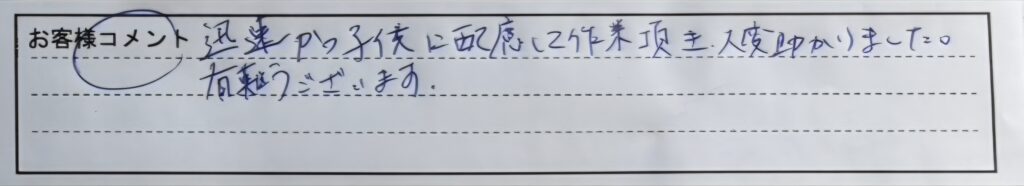 お客様コメント 迅速かつ子供に配慮して作業頂き、大変助かりました。
有難うございます。